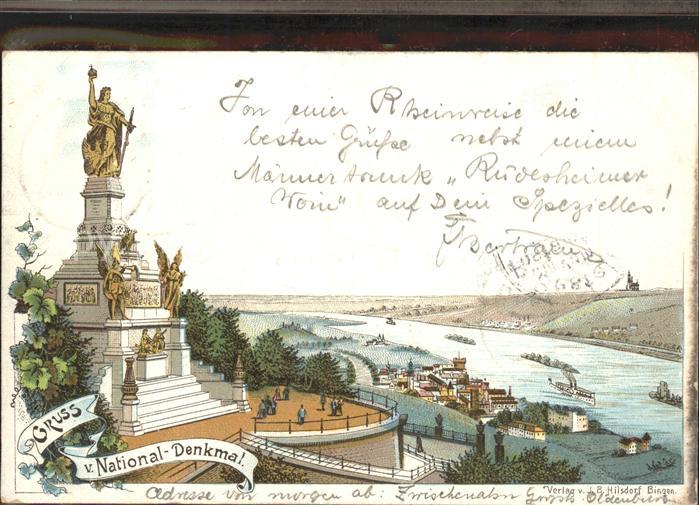 Von einer Rheinreise die
besten Grüße nebst einem
Männertrunk „Rüdesheimer
Wein" auf Dein Spezielles!
GRUSS
v. National-Denkmal.
Verlag v. J. B. Hilsdorf Bingen.
Adresse von morgen ab: Zwischenahn Grossh. Oldenburg